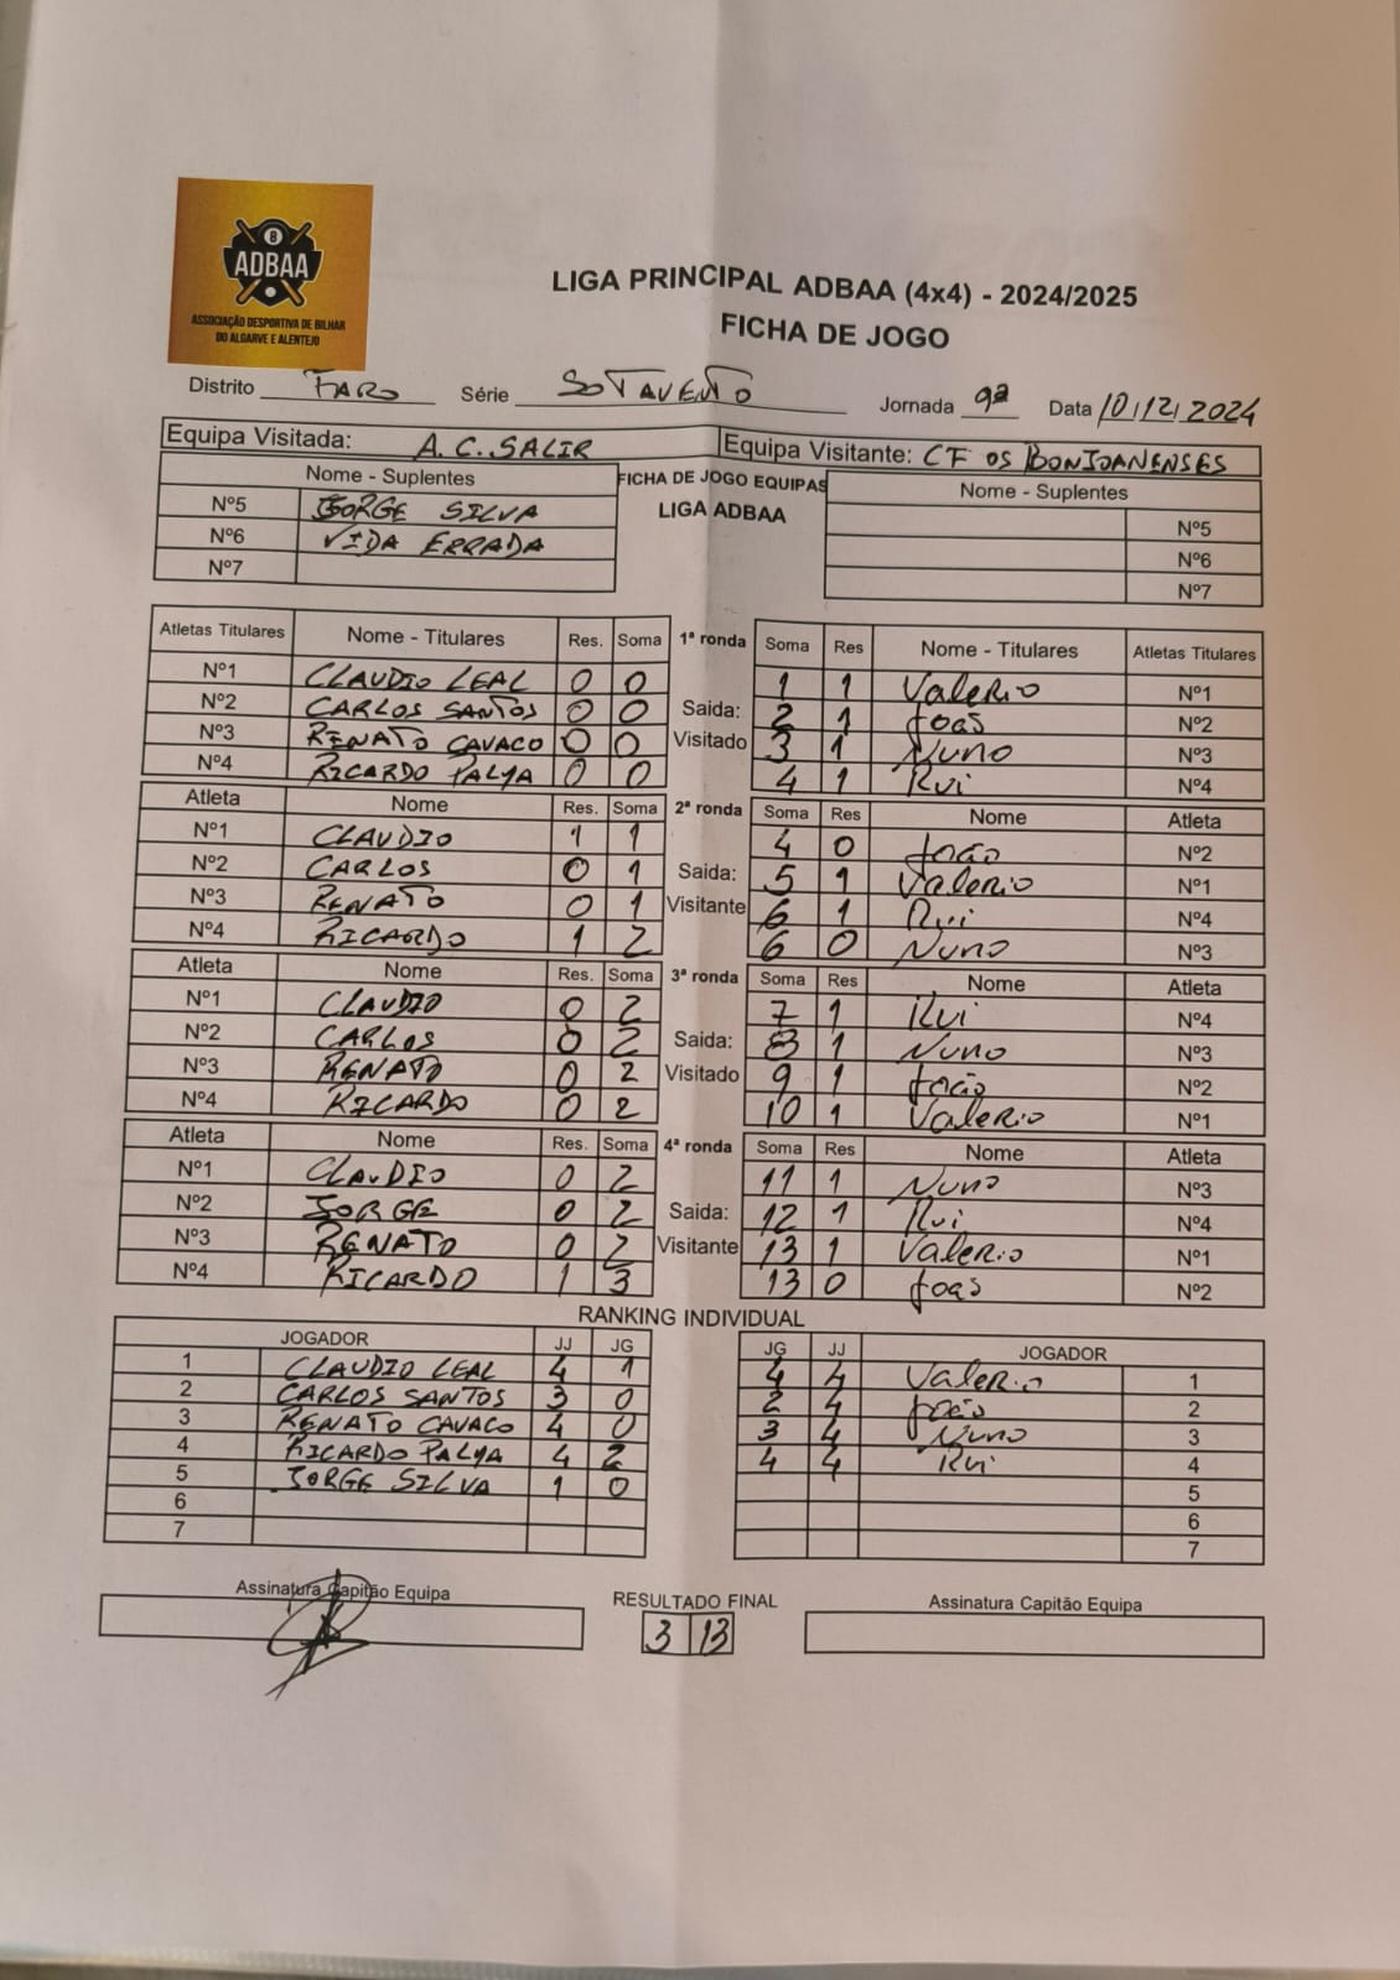 8
ADBAA
ASSOCIAÇÃO DESPORTIVA DE BILHAR
DO ALGARVE E ALENTEJO
LIGA PRINCIPAL ADBAA (4x4) - 2024/2025
FICHA DE JOGO
Distrito FARO Série SOTAVENTO Jornada 9ª Data 10/12/2024
Equipa Visitada: A.C. SALIR Equipa Visitante: CF OS BONJOANENSES
Nome - Suplentes FICHA DE JOGO EQUIPAS Nome - Suplentes
Nº5 JORGE SILVA LIGA ADBAA Nº5
Nº6 VIDA ERRADA Nº6
Nº7 Nº7
Atletas Titulares Nome - Titulares Res. Soma 1ª ronda Soma Res Nome - Titulares Atletas Titulares
Nº1 CLAUDIO LEAL 0 0 1 1 Valerio Nº1
Nº2 CARLOS SANTOS 0 0 Saida: 2 1 João Nº2
Nº3 RENATO CAVACO 0 0 Visitado 3 1 Nuno Nº3
Nº4 RICARDO PALMA 0 0 4 1 Rui Nº4
Atleta Nome Res. Soma 2ª ronda Soma Res Nome Atleta
Nº1 CLAUDIO 1 1 4 0 João Nº2
Nº2 CARLOS 0 1 Saida: 5 1 Valerio Nº1
Nº3 RENATO 0 1 Visitante 6 1 Rui Nº4
Nº4 RICARDO 1 2 6 0 Nuno Nº3
Atleta Nome Res. Soma 3ª ronda Soma Res Nome Atleta
Nº1 CLAUDIO 0 2 7 1 Rui Nº4
Nº2 CARLOS 0 2 Saida: 8 1 Nuno Nº3
Nº3 RENATO 0 2 Visitado 9 1 João Nº2
Nº4 RICARDO 0 2 10 1 Valerio Nº1
Atleta Nome Res. Soma 4ª ronda Soma Res Nome Atleta
Nº1 CLAUDIO 0 2 11 1 Nuno Nº3
Nº2 JORGE 0 2 Saida: 12 1 Rui Nº4
Nº3 RENATO 0 2 Visitante 13 1 Valerio Nº1
Nº4 RICARDO 1 3 13 0 João Nº2
RANKING INDIVIDUAL
JOGADOR JJ JG JG JJ JOGADOR
1 CLAUDIO LEAL 4 1 4 4 Valerio 1
2 CARLOS SANTOS 3 0 2 4 João 2
3 RENATO CAVACO 4 0 3 4 Nuno 3
4 RICARDO PALMA 4 2 4 4 Rui 4
5 JORGE SILVA 1 0 5
6 6
7 7
Assinatura Capitão Equipa RESULTADO FINAL Assinatura Capitão Equipa
3 13